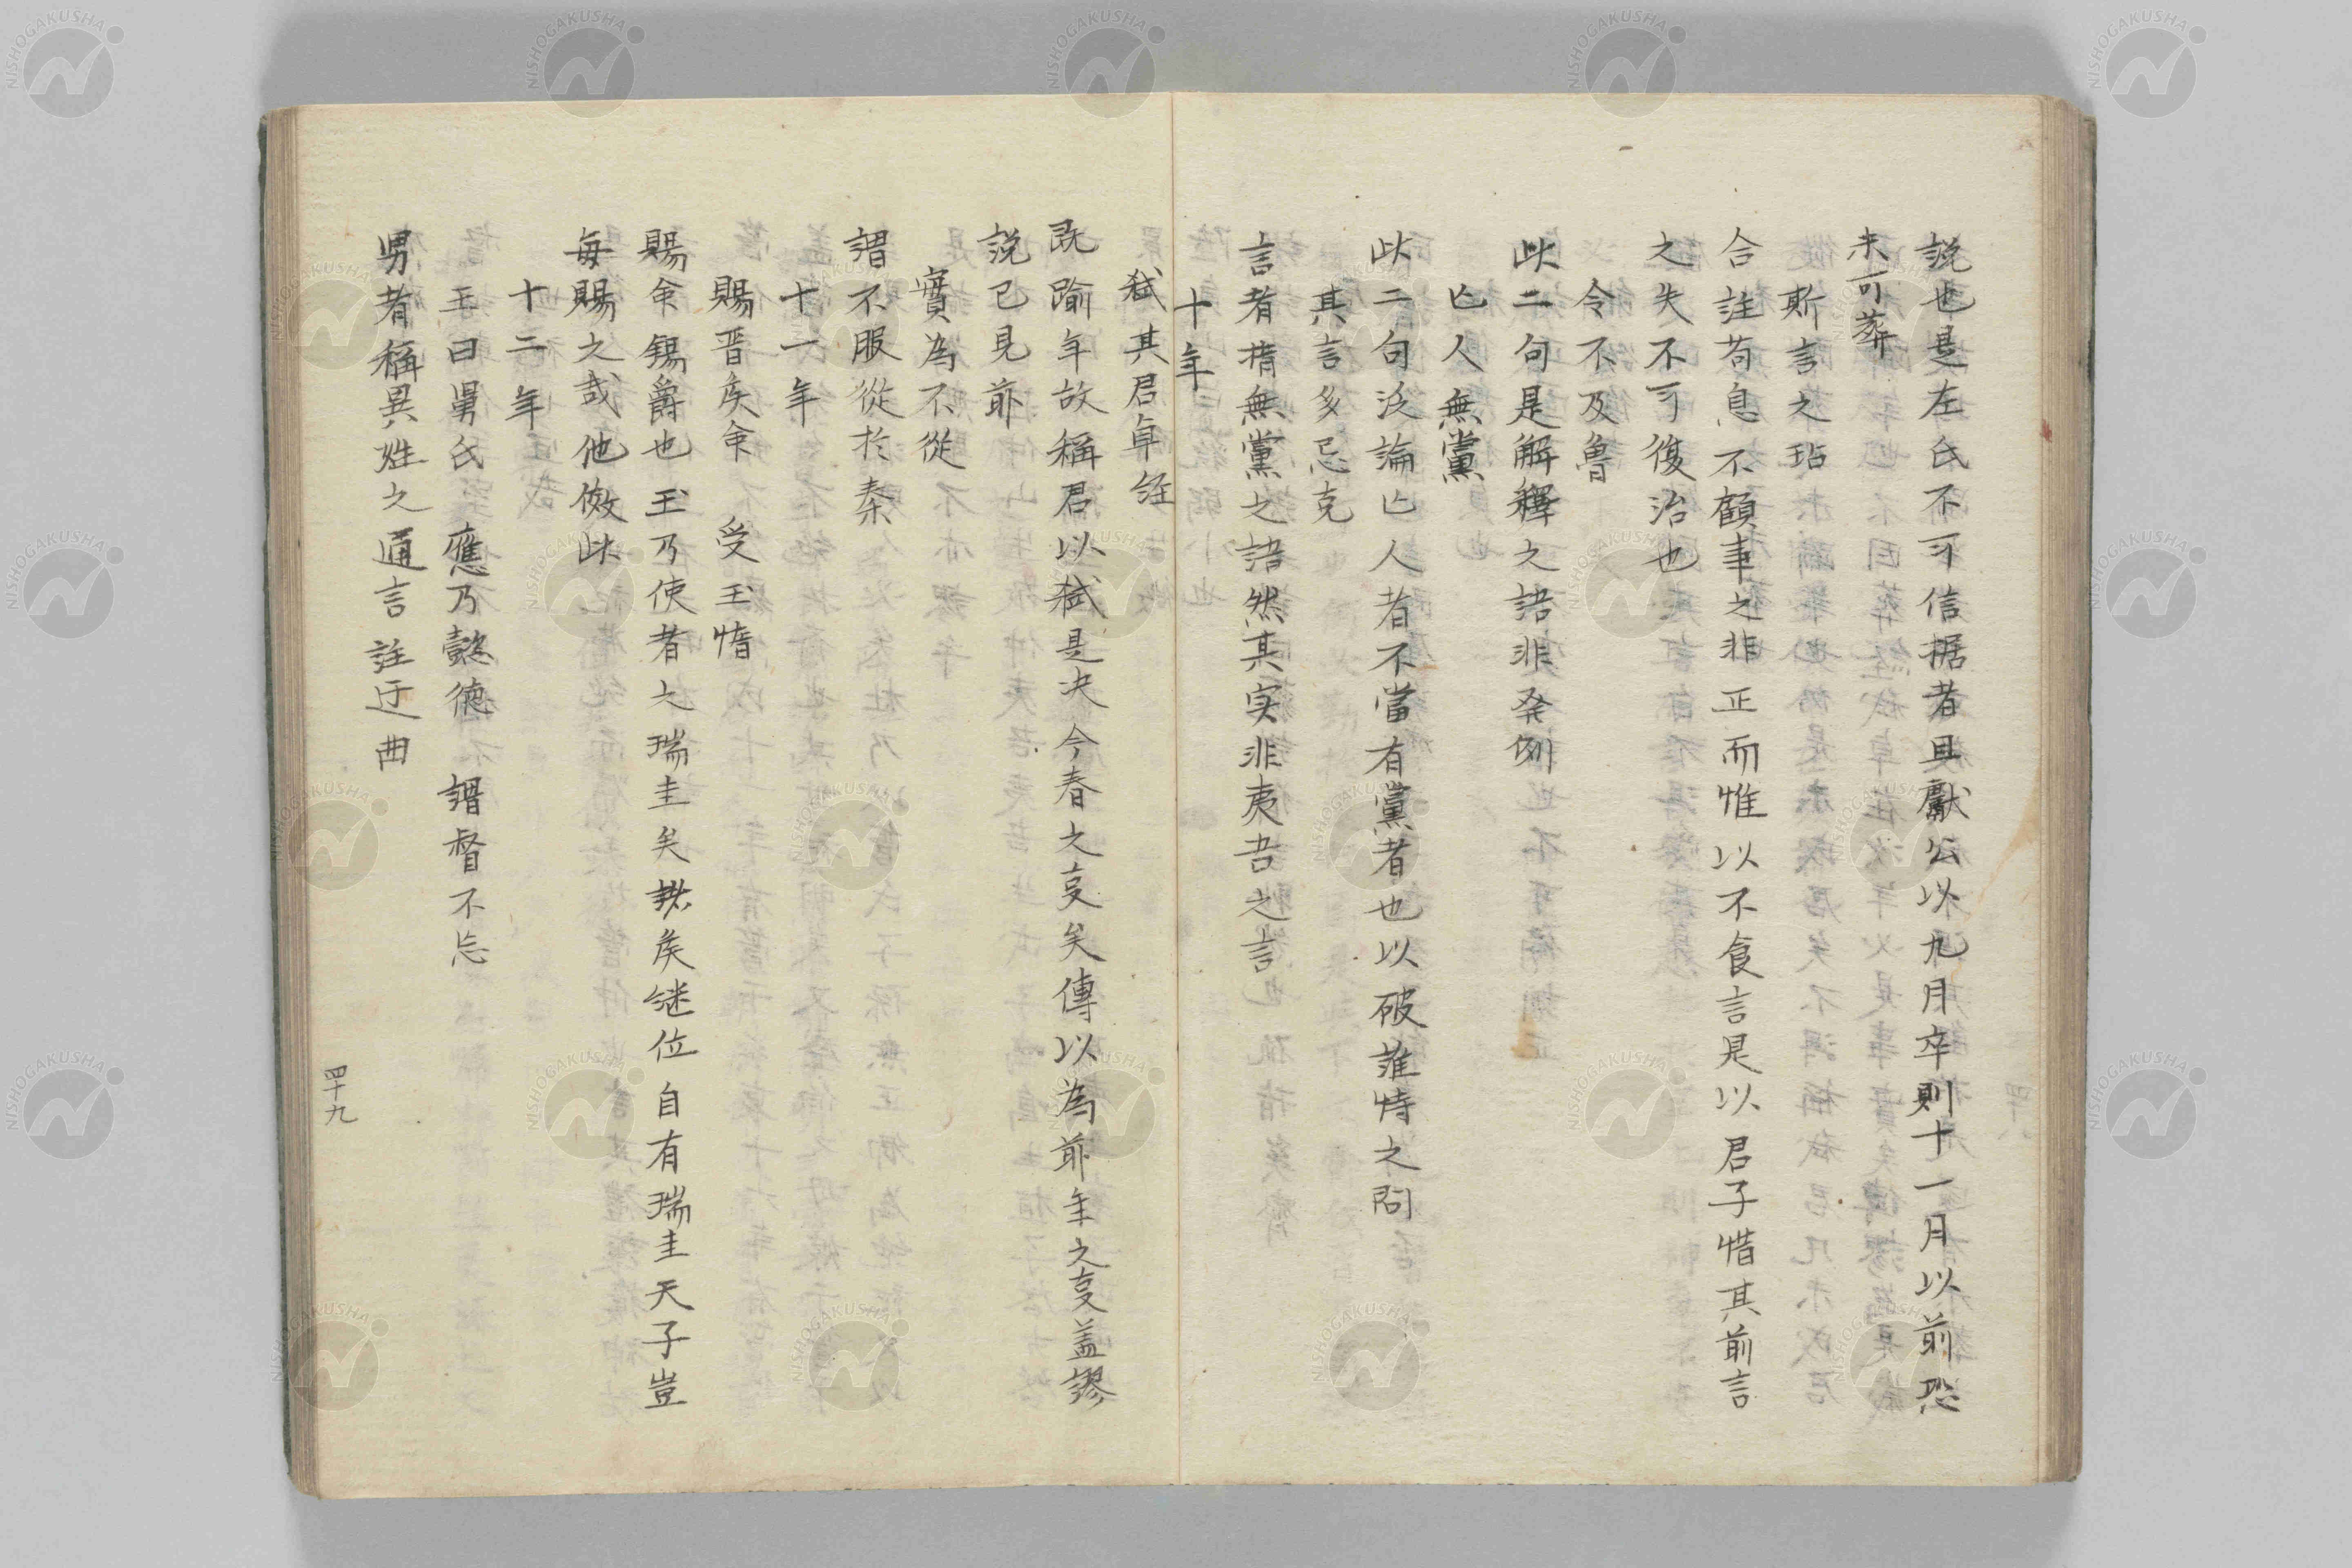 説也是左氏不可信据者且獻公以九月卒則十一月以前恐
未可葬
斯言之玷
合註荀息不顧事之非正而惟以不食言是以君子惜其前言
之失不可復治也
令不及魯
此二句是解釋之語非発例
亡人無黨
此二句泛論亡人者不當有黨者也以破誰恃之問
其言多忌克
言者指無黨之語然其实非夷吾之言
十年
弑其君卓経
既踰年故稱君以弑是决今春之叓矣傳以為前年之叓盖謬
説已見前
實為不從
謂不服從於秦
十一年
賜晋侯命 受玉惰
賜命錫爵也玉乃使者之瑞圭矣諸侯継位自有瑞圭天子豈
毎賜之哉他傚此
十二年
王曰舅氏 應乃懿德 謂督不忘
舅者稱異姓之通言註迂曲
四十九
NISHOGAKUSHA